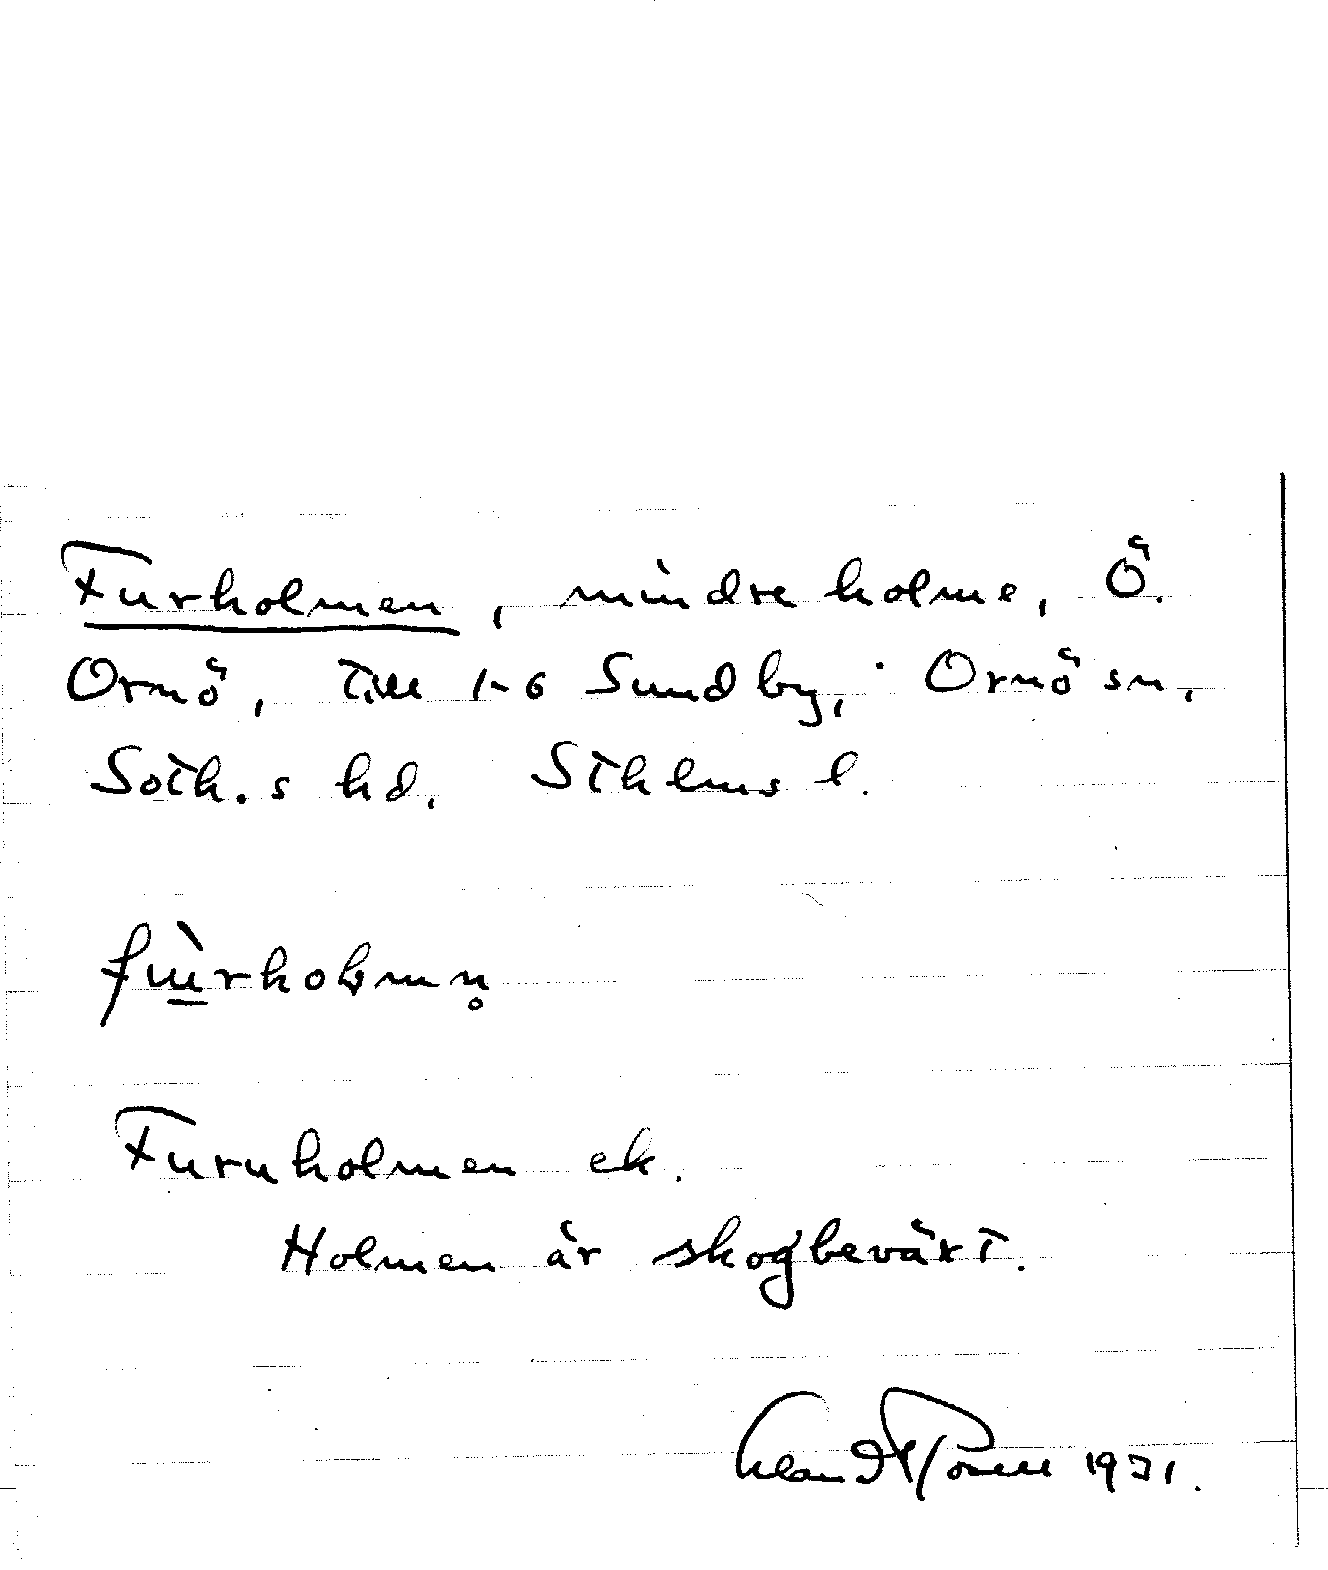 Furholmen, mindre holme, Ö.
Ornö, till 1-6 Sundby, Ornö sn,
Soth.s hd. Sthlms l.
fùrholmn̥
Furuholmen ek.
Holmen är skogbeväxt.
1971.